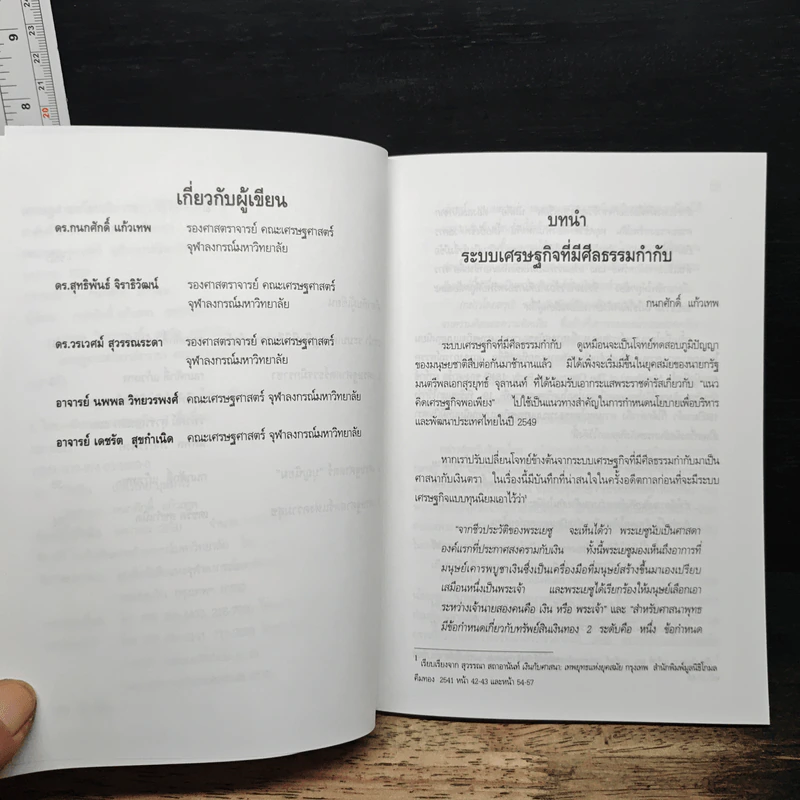 9
8
24
23
22
21
20
เกี่ยวกับผู้เขียน
ดร.กนกศักดิ์ แก้วเทพ รองศาสตราจารย์ คณะเศรษฐศาสตร์
จุฬาลงกรณ์มหาวิทยาลัย
ดร.สุทธิพันธ์ จิราธิวัฒน์ รองศาสตราจารย์ คณะเศรษฐศาสตร์
จุฬาลงกรณ์มหาวิทยาลัย
ดร.วรเวศม์ สุวรรณระดา รองศาสตราจารย์ คณะเศรษฐศาสตร์
จุฬาลงกรณ์มหาวิทยาลัย
อาจารย์ นพพล วิทยวรพงศ์ คณะเศรษฐศาสตร์ จุฬาลงกรณ์มหาวิทยาลัย
อาจารย์ เดชรัต สุขกำเนิด คณะเศรษฐศาสตร์ จุฬาลงกรณ์มหาวิทยาลัย
บทนำ
ระบบเศรษฐกิจที่มีศีลธรรมกำกับ
กนกศักดิ์ แก้วเทพ
ระบบเศรษฐกิจที่มีศีลธรรมกำกับ ดูเหมือนจะเป็นโจทย์ทดสอบภูมิปัญญา
ของมนุษยชาติสืบต่อกันมาช้านานแล้ว มิได้เพิ่งจะเริ่มมีขึ้นในยุคสมัยของนายกรัฐ
มนตรีพลเอกสุรยุทธ์ จุลานนท์ ที่ได้น้อมรับเอากระแสพระราชดำรัสเกี่ยวกับ "แนว
คิดเศรษฐกิจพอเพียง" ไปใช้เป็นแนวทางสำคัญในการกำหนดนโยบายเพื่อบริหาร
และพัฒนาประเทศไทยในปี 2549
หากเราปรับเปลี่ยนโจทย์ข้างต้นจากระบบเศรษฐกิจที่มีศีลธรรมกำกับมาเป็น
ศาสนากับเงินตรา ในเรื่องนี้มีบันทึกที่น่าสนใจในครั้งอดีตกาลก่อนที่จะมีระบบ
เศรษฐกิจแบบทุนนิยมเอาไว้ว่า¹
"จากชีวประวัติของพระเยซู จะเห็นได้ว่า พระเยซูนับเป็นศาสดา
องค์แรกที่ประกาศสงครามกับเงิน ทั้งนี้พระเยซูมองเห็นถึงอาการที่
มนุษย์เคารพบูชาเงินซึ่งเป็นเครื่องมือที่มนุษย์สร้างขึ้นมาเองเปรียบ
เสมือนหนึ่งเป็นพระเจ้า และพระเยซูได้เรียกร้องให้มนุษย์เลือกเอา
ระหว่างเจ้านายสองคนคือ เงิน หรือ พระเจ้า" และ "สำหรับศาสนาพุทธ
มีข้อกำหนดเกี่ยวกับทรัพย์สินเงินทอง 2 ระดับคือ หนึ่ง ข้อกำหนด
1 เรียบเรียงจาก สุวรรณา สถาอานันท์ เงินกับศาสนา: เทพยุทธแห่งยุคสมัย กรุงเทพ สำนักพิมพ์มูลนิธิโกมล
คีมทอง 2541 หน้า 42-43 และหน้า 54-57